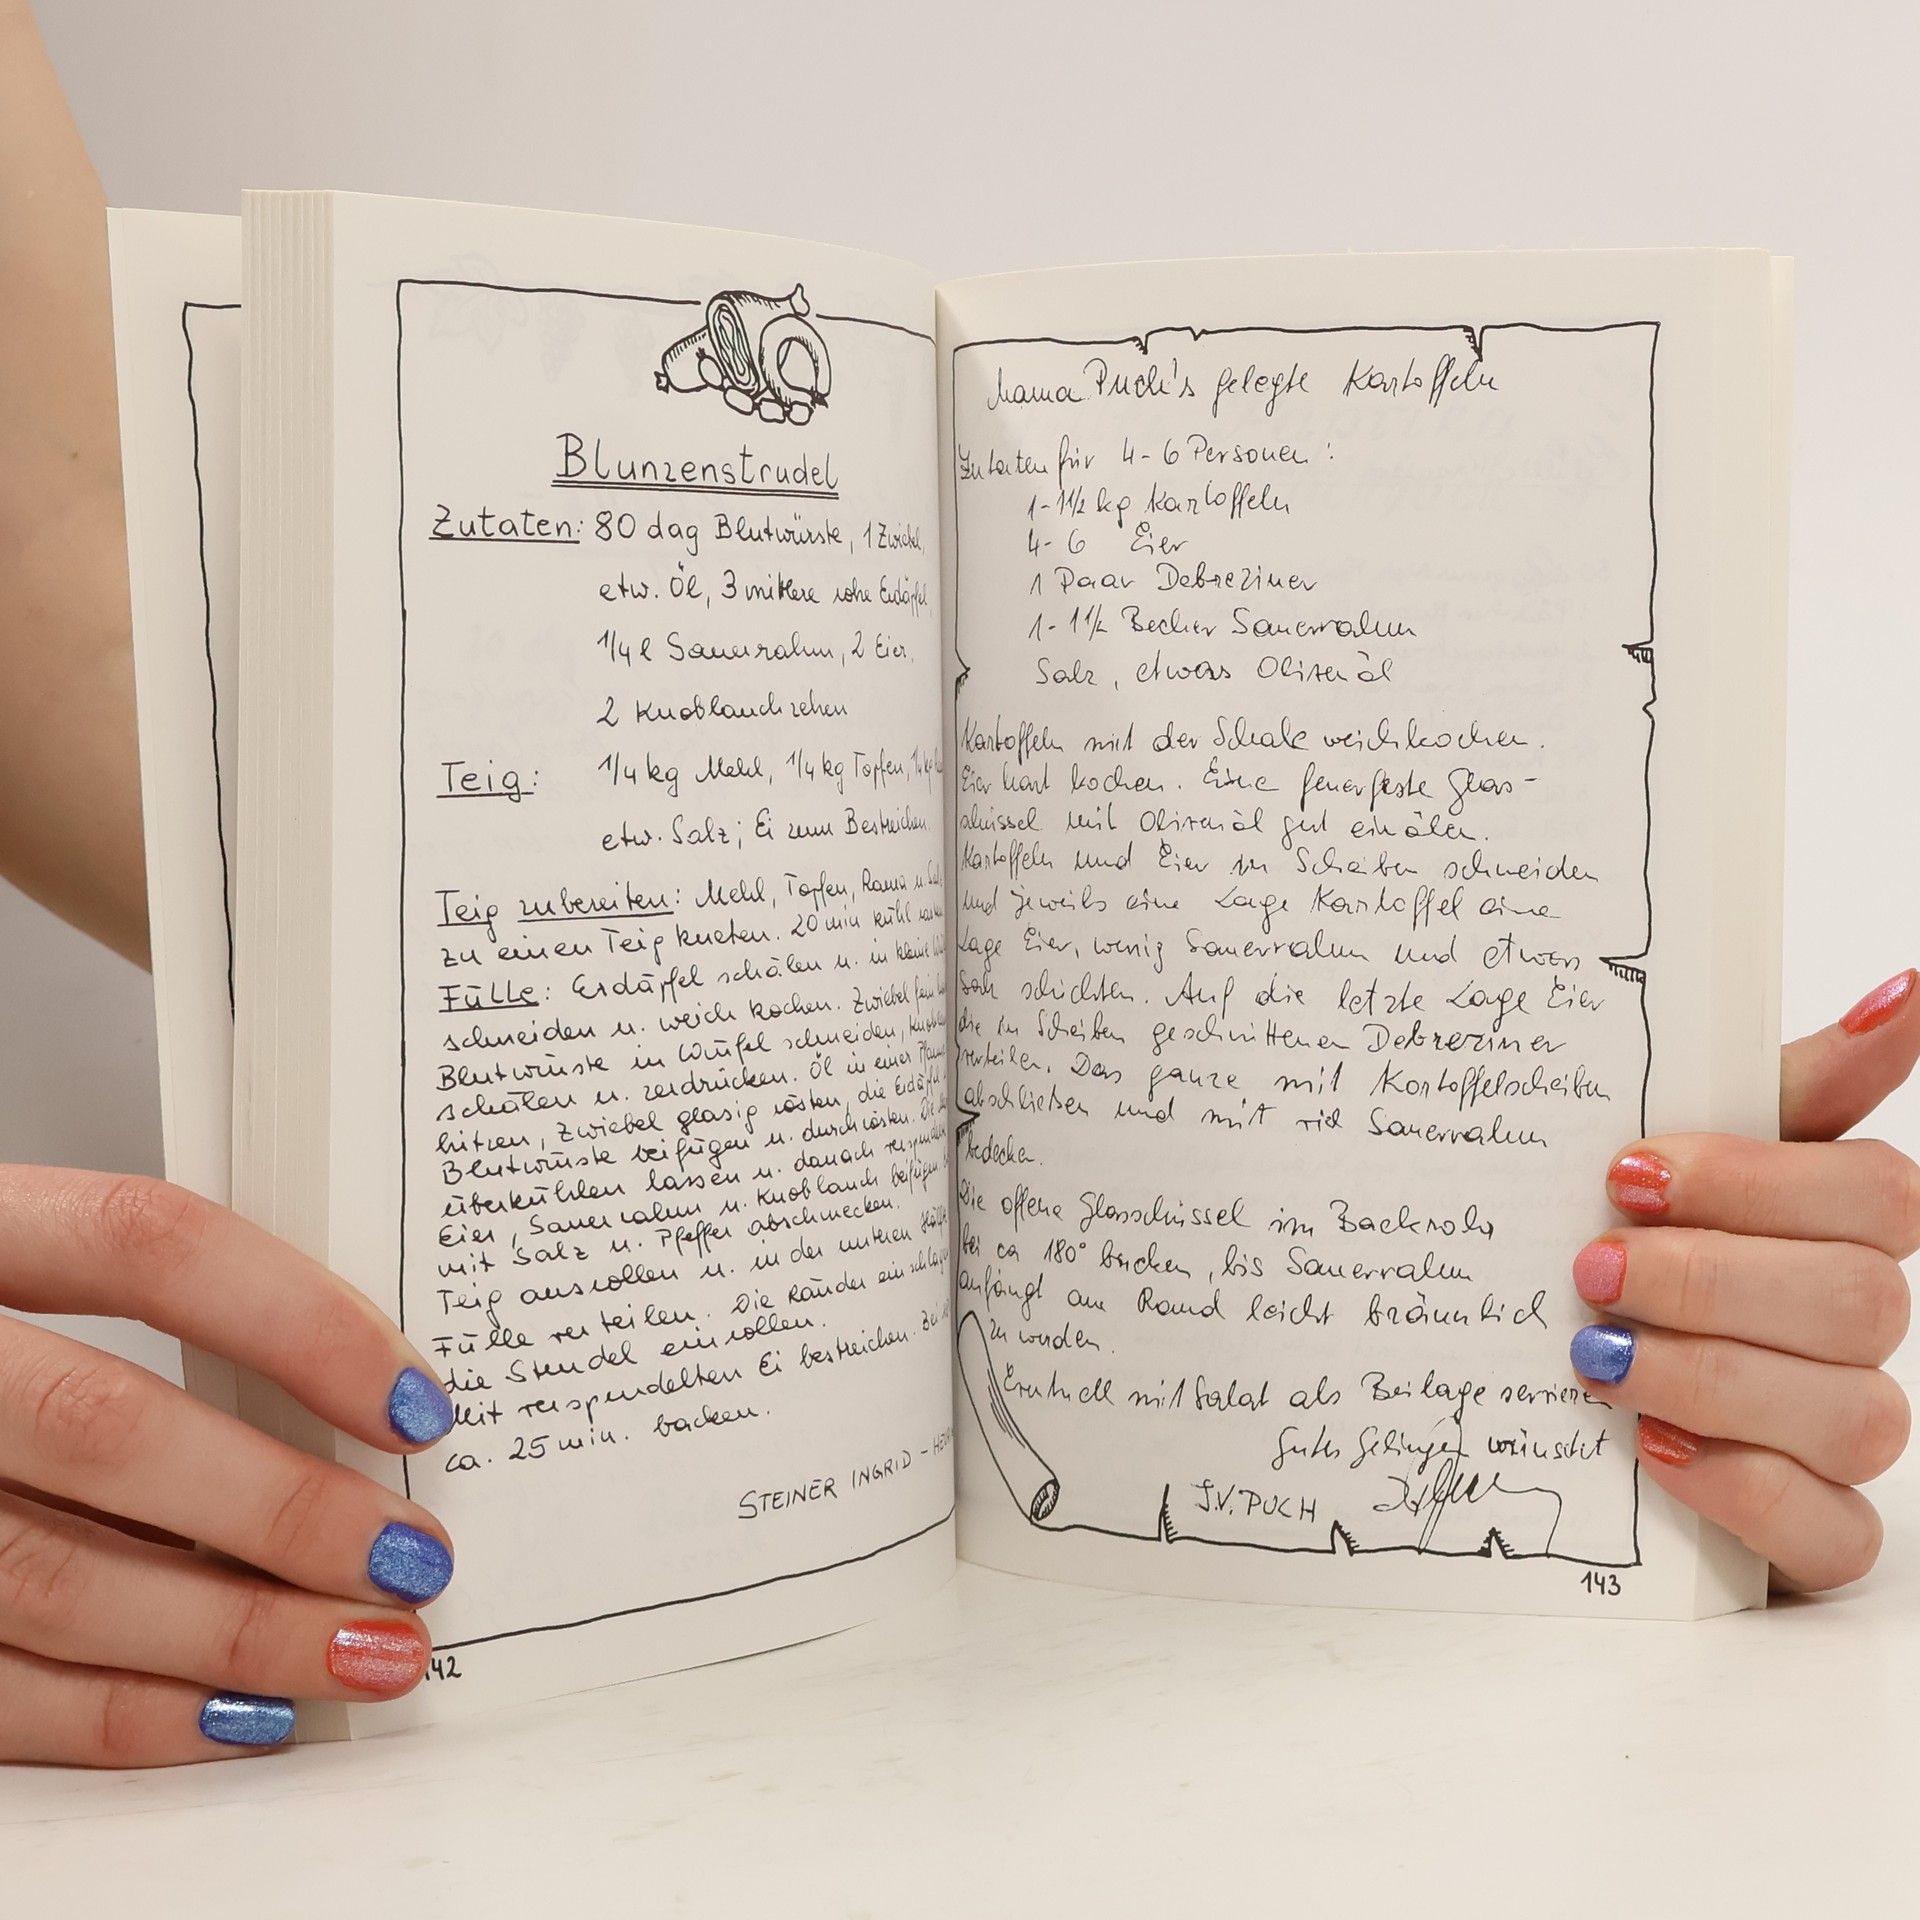 Blunzenstrudel
Zutaten: 80 dag Blutwürste, 1 Zwiebel,
etw. Öl, 3 mittlere rohe Erdäpfel,
1/4 l Sauerrahm, 2 Eier,
2 Knoblauchzehen
Teig: 1/4 kg Mehl, 1/4 kg Topfen, 1/4 kg
etw. Salz; Ei zum Bestreichen.
Teig zubereiten: Mehl, Topfen, Rama u.
zu einen Teig kneten. 20 min kühl
Fülle: Erdäpfel schälen u. in kleine
schneiden u. weich kochen. Zwiebel fein
Blutwürste in Würfel schneiden,
schälen u. zerdrücken. Öl in einer
hitzen, Zwiebel glasig rösten, die Erdäpfel
Blutwürste beifügen u. durchrösten. Die
überkühlen lassen u. danach
Eier, Sauerrahm u. Knoblauch beifügen.
mit Salz u. Pfeffer abschmecken.
Teig ausrollen u. in der unteren Hälfte
Fülle verteilen. Die Ränder einschlagen
die Strudel einrollen.
Mit verspudelten Ei bestreichen. Bei
ca. 25 min. backen.
STEINER INGRID -
142
Mama Puch's gelegte Kartoffeln
Zutaten für 4-6 Personen:
1-1 1/2 kg Kartoffeln
4-6 Eier
1 Paar Debreziner
1-1 1/2 Becher Sauerrahm
Salz, etwas Olivenöl
Kartoffeln mit der Schale weichkochen.
Eier hart kochen. Eine feuerfeste Glas-
schüssel mit Olivenöl gut einölen.
Kartoffeln und Eier in Scheiben schneiden
und jeweils eine Lage Kartoffel eine
Lage Eier, wenig Sauerrahm und etwas
Salz schichten. Auf die letzte Lage Eier
die in Scheiben geschnittenen Debreziner
verteilen. Das ganze mit Kartoffelscheiben
abschließen und mit viel Sauerrahm
bedecken.
Die offene Glasschüssel im Backrohr
bei ca 180° backen, bis Sauerrahm
anfängt am Rand leicht bräunlich
zu werden.
Eventuell mit Salat als Beilage servieren
Gutes Gelingen wünscht
J.V. PUCH
143